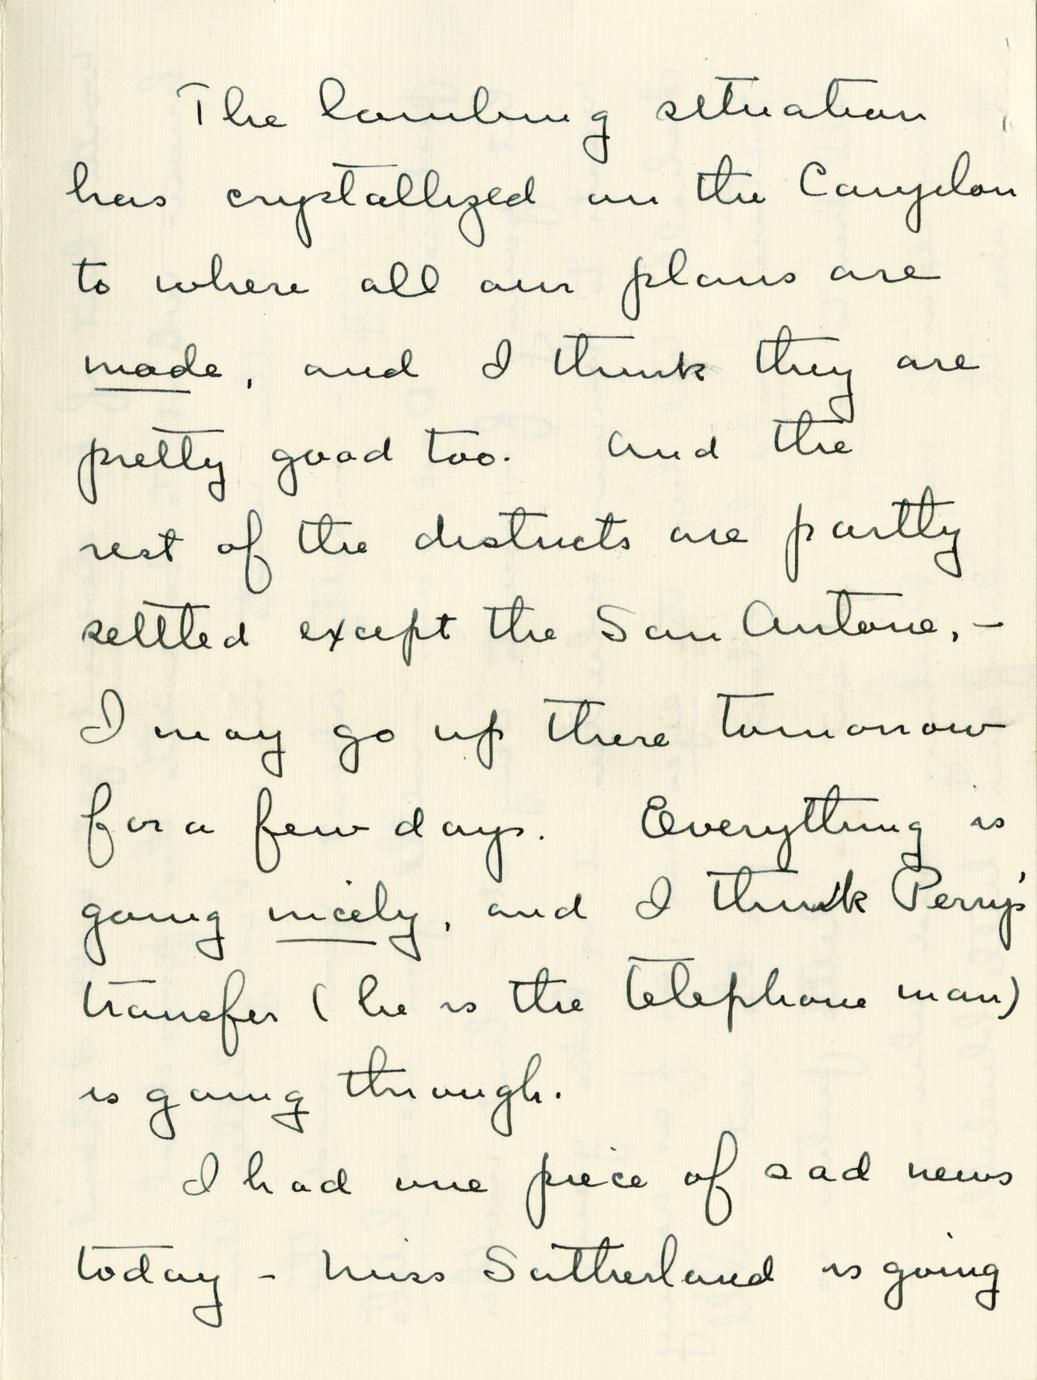 The lambing situation
has crystallized on the Corydon
to where all our plans are
made, and I think they are
pretty good too. And the
rest of the districts are partly
settled except the San Antone, -
I may go up there tomorrow
for a few days. Everything is
going nicely, and I think Perry's
transfer (he is the telephone man)
is going through.
I had one piece of sad news
today - Miss Sutherland is going